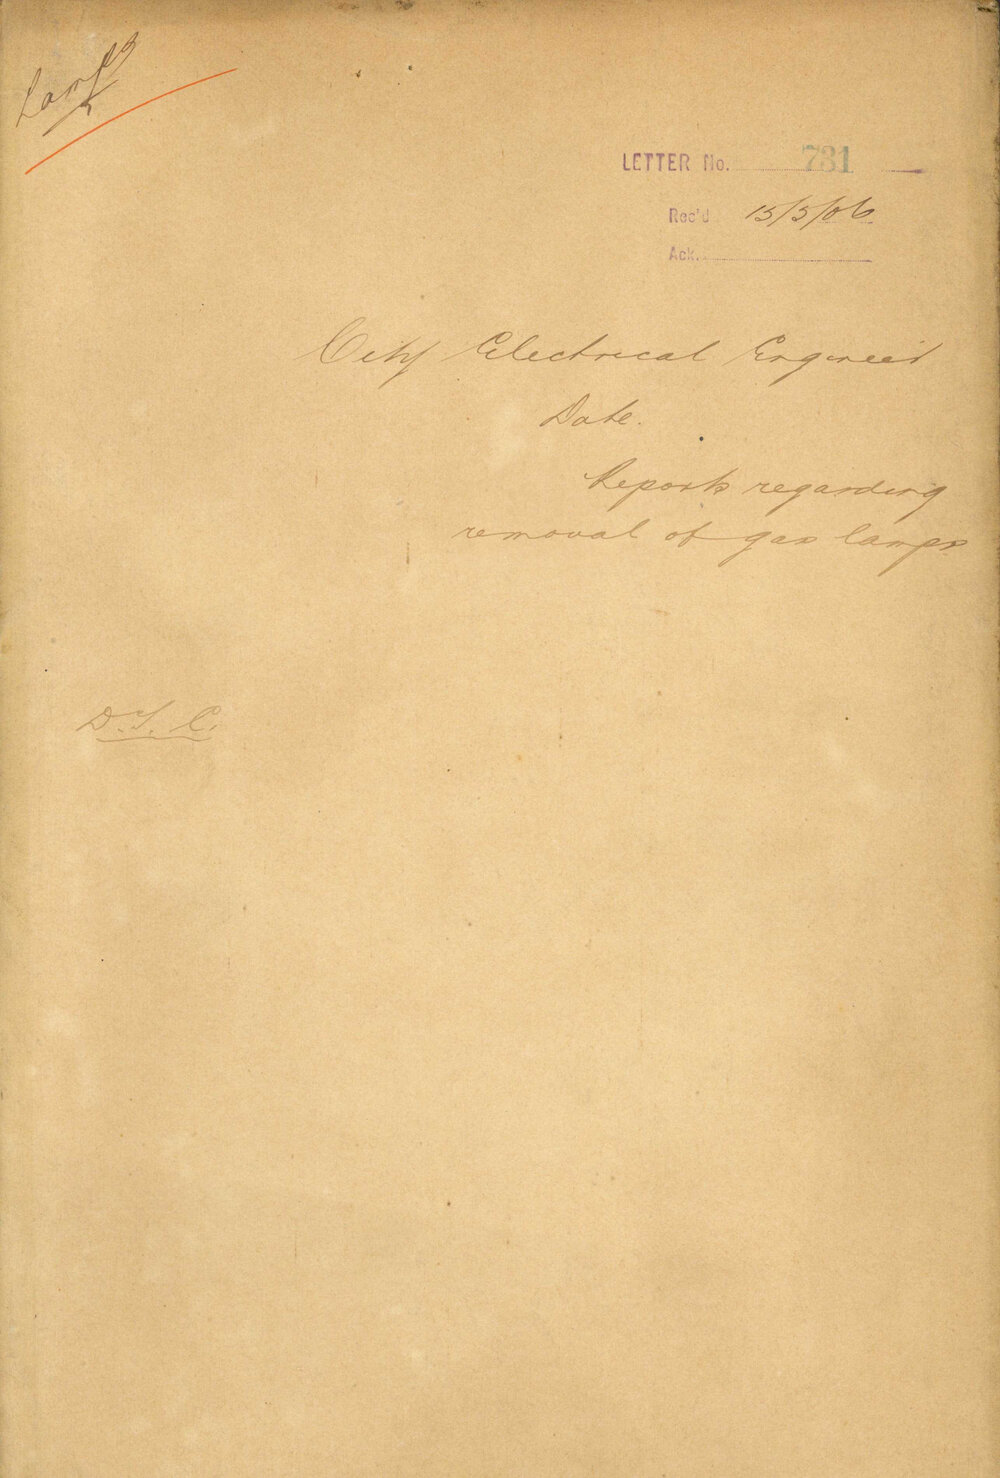 Lamps
LETTER No. 731
Rec'd 15/5/06
Ack.
City Electrical Engineer
Date.
Reports regarding
removal of gas lamps.